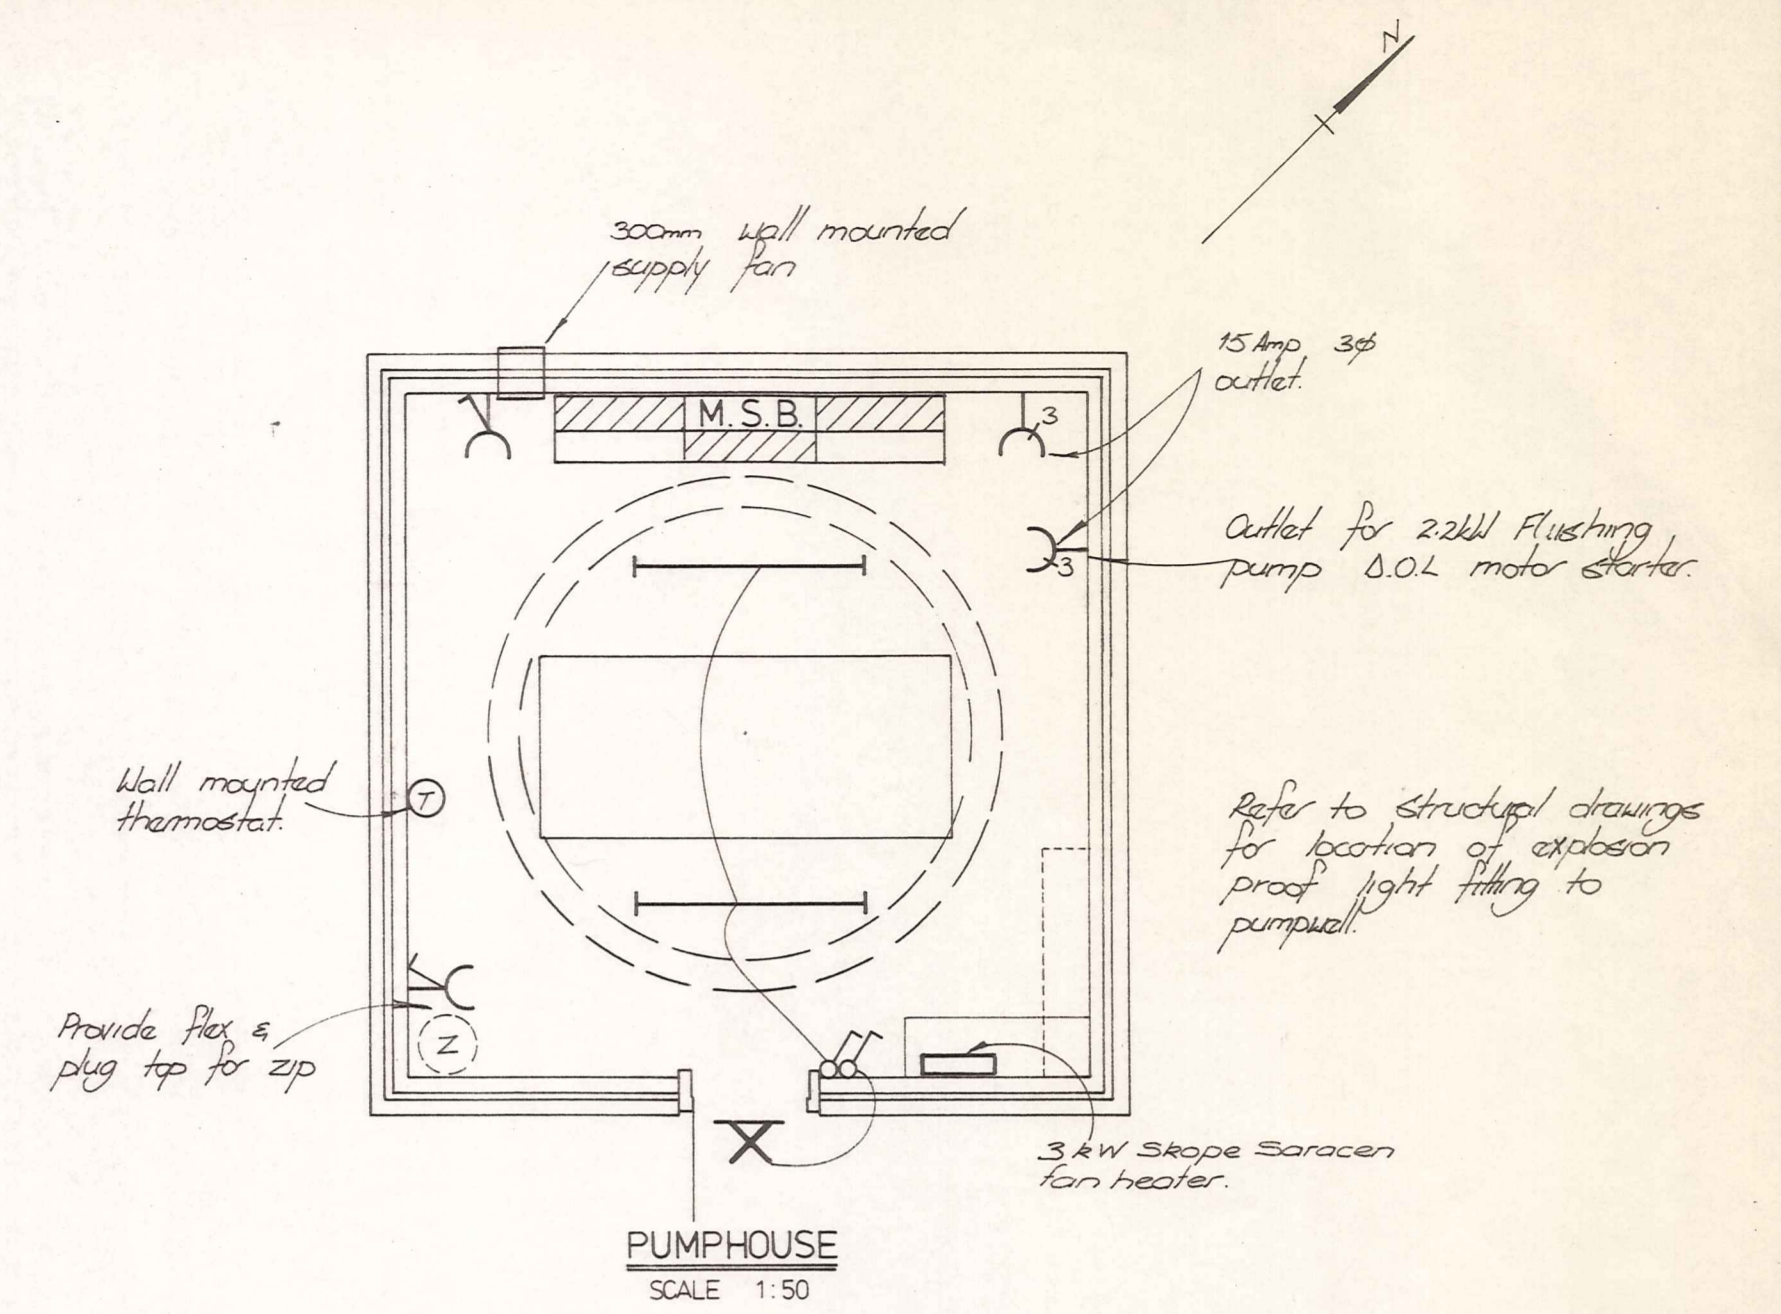 N
300mm wall mounted
supply fan
15 Amp 3ø
outlet.
M.S.B.
3
3
Outlet for 2.2kW Flushing
pump D.O.L motor starter.
Wall mounted
thermostat.
T
Refer to structural drawings
for location of explosion
proof light fitting to
pumpwell.
Provide flex &
plug top for zip
Z
3kW Skope Saracen
fan heater.
PUMPHOUSE
SCALE 1:50